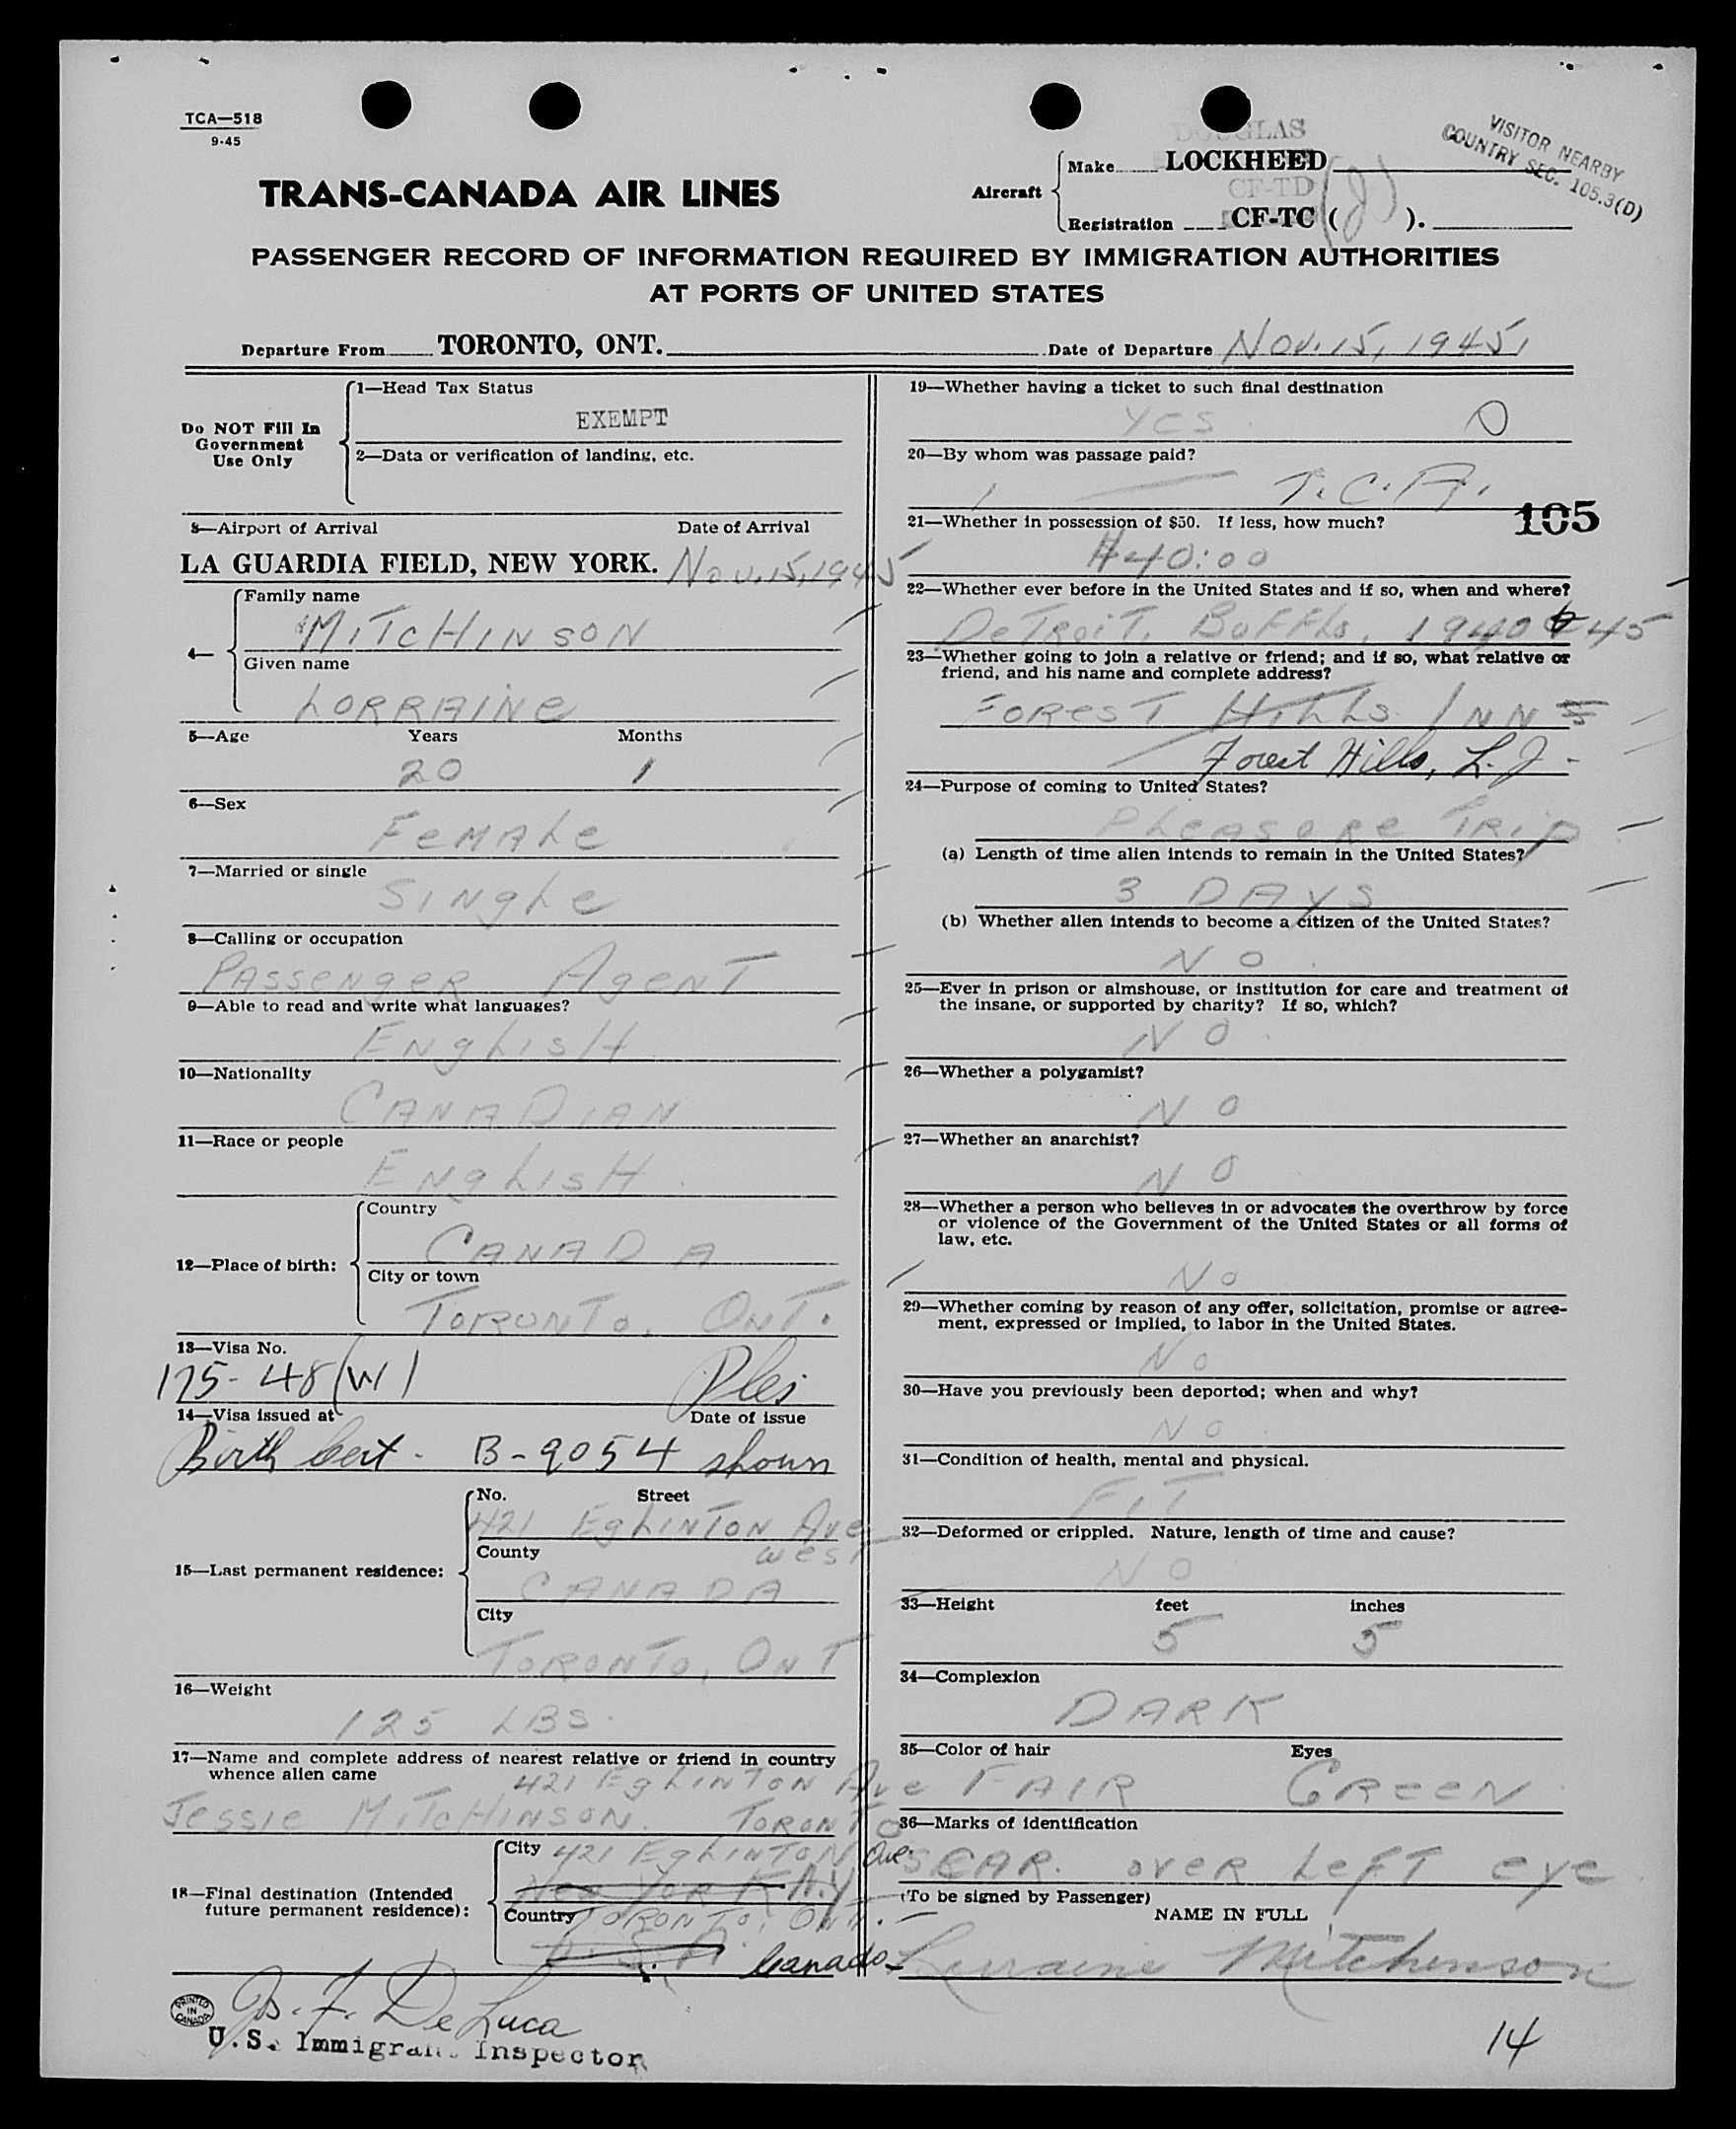 TCA—518
9-45
VISITOR NEARBY
COUNTRY SEC. 105.3(D)
DOUGLAS
Make LOCKHEED
TRANS-CANADA AIR LINES
Aircraft
CF-TD
Registration CF-TC (J).
PASSENGER RECORD OF INFORMATION REQUIRED BY IMMIGRATION AUTHORITIES
AT PORTS OF UNITED STATES
Departure From TORONTO, ONT. Date of Departure Nov. 15, 1945,
Do NOT Fill In
Government
Use Only
1—Head Tax Status
EXEMPT
2—Data or verification of landing, etc.
3—Airport of Arrival Date of Arrival
LA GUARDIA FIELD, NEW YORK. Nov. 15, 1945
4—
Family name
MITCHINSON
Given name
LORRAINE
5—Age Years Months
20 1
6—Sex
FEMALE
7—Married or single
SINGLE
8—Calling or occupation
PASSENGER AGENT
9—Able to read and write what languages?
ENGLISH
10—Nationality
CANADIAN
11—Race or people
ENGLISH
12—Place of birth:
Country
CANADA
City or town
TORONTO, ONT.
13—Visa No.
175-48(W)
14—Visa issued at Date of issue
Birth Cert - B-9054 shown
15—Last permanent residence:
No. Street
421 EGLINTON AVE
WEST
County
CANADA
City
TORONTO, ONT
16—Weight
125 LBS.
17—Name and complete address of nearest relative or friend in country
whence alien came
421 EGLINTON AVE
JESSIE MITCHINSON. TORONTO
18—Final destination (Intended
future permanent residence):
City 421 EGLINTON Ave.
NEW YORK N.Y
Country TORONTO, ONT.
U.S.A. Canada
J. F. De Luca
U.S. Immigrant Inspector
PRINTED
IN
CANADA
19—Whether having a ticket to such final destination
YES
20—By whom was passage paid?
T.C.A.
105
21—Whether in possession of $50. If less, how much?
$40:00
22—Whether ever before in the United States and if so, when and where?
DETROIT, BUFFLO, 1940 45
23—Whether going to join a relative or friend; and if so, what relative or
friend, and his name and complete address?
FOREST HILLS INN
Forest Hills, L.I.
24—Purpose of coming to United States?
PLEASURE TRIP
(a) Length of time alien intends to remain in the United States?
3 DAYS
(b) Whether alien intends to become a citizen of the United States?
NO
25—Ever in prison or almshouse, or institution for care and treatment of
the insane, or supported by charity? If so, which?
NO
26—Whether a polygamist?
NO
27—Whether an anarchist?
NO
28—Whether a person who believes in or advocates the overthrow by force
or violence of the Government of the United States or all forms of
law, etc.
NO
29—Whether coming by reason of any offer, solicitation, promise or agree-
ment, expressed or implied, to labor in the United States.
NO
30—Have you previously been deported; when and why?
NO
31—Condition of health, mental and physical.
FIT
32—Deformed or crippled. Nature, length of time and cause?
NO
33—Height feet inches
5 5
34—Complexion
DARK
35—Color of hair Eyes
FAIR GREEN
36—Marks of identification
SCAR. OVER LEFT EYE
(To be signed by Passenger)
NAME IN FULL
Lorraine Mitchinson
14